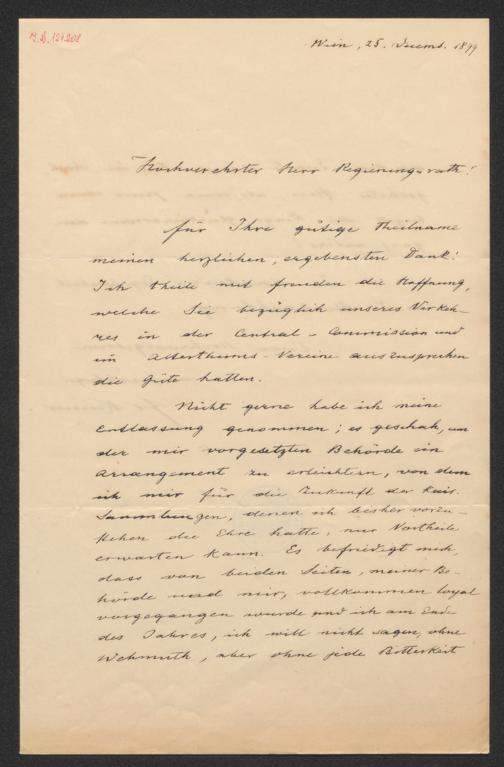 I.N. 121.208
Wien, 25. Decemb. 1899
Hochverehrter Herr Regierungsrath!
für Ihre gütige Theilname
meinen herzlichen, ergebensten Dank!
Ich theile mit freuden die Hoffnung,
welche Sie bezüglich unseres Verkeh-
res in der Central-Commission und
im Alterthums-Vereine auszusprechen
die Güte hatten.
Nicht gerne habe ich meine
Entlassung genommen; es geschah, um
der mir vorgesetzten Behörde ein
Arrangement zu erleichtern, von dem
ich mir für die Zukunft der kais.
Sammlungen, denen ich bisher vorzu-
stehen die Ehre hatte, nur Vortheile
erwarten kann. Es befriedigt mich,
dass von beiden Seiten, meiner Be-
hörde und mir, vollkommen loyal
vorgegangen wurde und ich am Ende
des Jahres, ich will nicht sagen, ohne
Wehmuth, aber ohne jede Bitterkeit